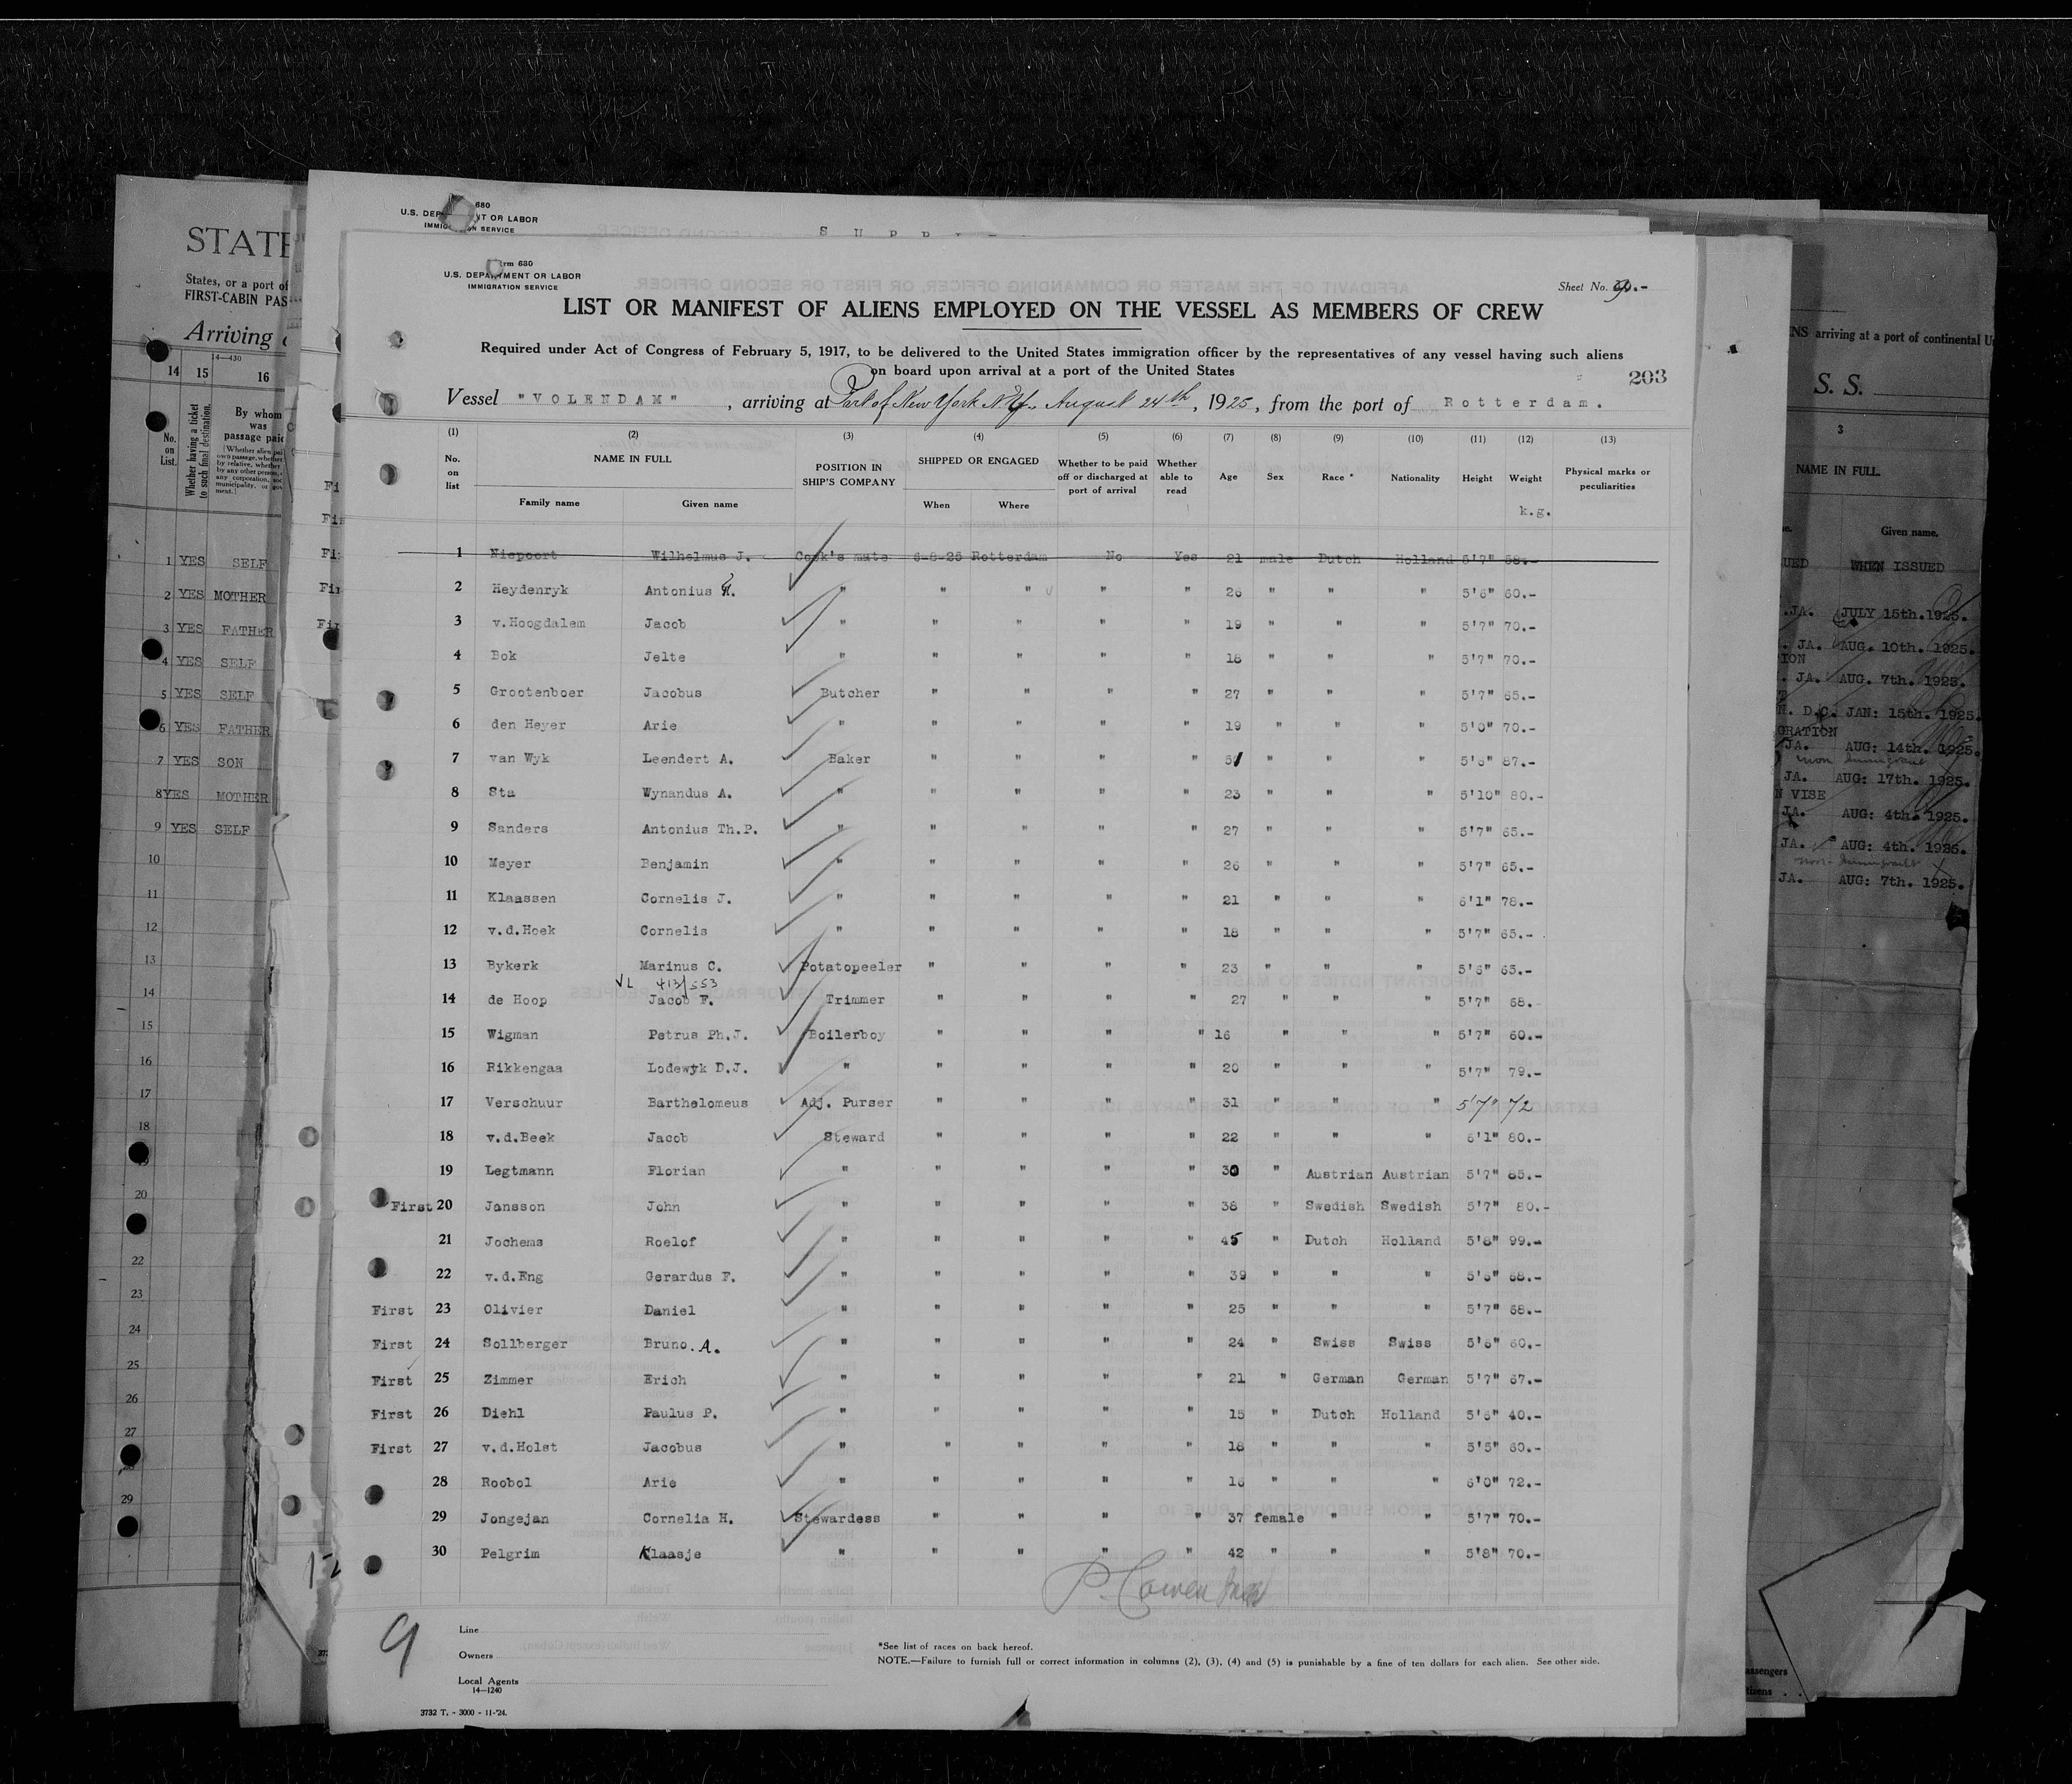 680
U.S. DEP NT OR LABOR
IMMIG N SERVICE
S U P P L
STATE
States, or a port of
FIRST-CABIN PAS
Arriving
14—430
14 15 16
No. on List.
Whether having a ticket to such final destination.
By whom was passage paid
1 YES SELF
2 YES MOTHER
3 YES FATHER
4 YES SELF
5 YES SELF
6 YES FATHER
7 YES SON
8 YES MOTHER
9 YES SELF
10
11
12
13
14
15
16
17
18
20
22
23
24
25
26
27
29
rm 680
U.S. DEPA MENT OR LABOR
IMMIGRATION SERVICE
Sheet No. 9.-
LIST OR MANIFEST OF ALIENS EMPLOYED ON THE VESSEL AS MEMBERS OF CREW
Required under Act of Congress of February 5, 1917, to be delivered to the United States immigration officer by the representatives of any vessel having such aliens
on board upon arrival at a port of the United States
203
Vessel "VOLENDAM", arriving at Port of New York N.Y., August 24th, 1925, from the port of Rotterdam.
(1) (2) (3) (4) (5) (6) (7) (8) (9) (10) (11) (12) (13)
No. on list NAME IN FULL POSITION IN SHIP'S COMPANY SHIPPED OR ENGAGED Whether to be paid off or discharged at port of arrival Whether able to read Age Sex Race * Nationality Height Weight Physical marks or peculiarities
Family name Given name When Where k.g.
1 Niepoort Wilhelmus J. Cook's mate 6-8-25 Rotterdam No Yes 21 male Dutch Holland 5'7" 58.-
2 Heydenryk Antonius H. " " " " " 26 " " " 5'6" 60.-
3 v.Hoogdalem Jacob " " " " " 19 " " " 5'7" 70.-
4 Bok Jelte " " " " " 18 " " " 5'7" 70.-
5 Grootenboer Jacobus Butcher " " " " 27 " " " 5'7" 65.-
6 den Heyer Arie " " " " " 19 " " " 5'0" 70.-
7 van Wyk Leendert A. Baker " " " " 51 " " " 5'6" 87.-
8 Sta Wynandus A. " " " " " 23 " " " 5'10" 80.-
9 Sanders Antonius Th.P. " " " " " 27 " " " 5'7" 65.-
10 Meyer Benjamin " " " " " 26 " " " 5'7" 65.-
11 Klaassen Cornelis J. " " " " " 21 " " " 6'1" 78.-
12 v.d.Hoek Cornelis " " " " " 18 " " " 5'7" 65.-
13 Bykerk Marinus C. Potatopeeler " " " " 23 " " " 5'6" 65.-
VL 413/553
14 de Hoop Jacob F. Trimmer " " " " 27 " " " 5'7" 68.-
15 Wigman Petrus Ph.J. Boilerboy " " " " 16 " " " 5'7" 60.-
16 Rikkengaa Lodewyk D.J. " " " " " 20 " " " 5'7" 79.-
17 Verschuur Barthelomeus Adj. Purser " " " " 31 " " " 5'7" 72
18 v.d.Beek Jacob Steward " " " " 22 " " " 6'1" 80.-
19 Legtmann Florian " " " " " 30 " Austrian Austrian 5'7" 85.-
First 20 Jansson John " " " " " 38 " Swedish Swedish 5'7" 80.-
21 Jochems Roelof " " " " " 45 " Dutch Holland 5'8" 99.-
22 v.d.Eng Gerardus F. " " " " " 39 " " " 5'6" 68.-
First 23 Olivier Daniel " " " " " 25 " " " 5'7" 68.-
First 24 Sollberger Bruno. A. " " " " " 24 " Swiss Swiss 5'6" 60.-
First 25 Zimmer Erich " " " " " 21 " German German 5'7" 67.-
First 26 Diehl Paulus P. " " " " " 15 " Dutch Holland 5'6" 40.-
First 27 v.d.Holst Jacobus " " " " " 18 " " " 5'5" 60.-
28 Roobol Arie " " " " " 16 " " " 6'0" 72.-
29 Jongejan Cornelia H. Stewardess " " " " 37 female " " 5'7" 70.-
30 Pelgrim Klaasje " " " " " 42 " " " 5'8" 70.-
P. Cowen
9
Line
Owners
Local Agents
14—1240
*See list of races on back hereof.
NOTE.—Failure to furnish full or correct information in columns (2), (3), (4) and (5) is punishable by a fine of ten dollars for each alien. See other side.
3732 T. - 3000 - 11-'24.
NS arriving at a port of continental U
S. S.
3
NAME IN FULL.
Given name.
UED WHEN ISSUED
.JA. JULY 15th.1925.
. JA. AUG. 10th. 1925.
ION
. JA. AUG. 7th. 1925.
N. D.C. JAN: 15th. 1925.
GRATION
JA. AUG: 14th. 1925.
non Immigrant
JA. AUG: 17th. 1925.
N VISE
JA. AUG: 4th. 1925.
JA. AUG: 4th. 1925.
non-Immigrant
JA. AUG: 7th. 1925.
assengers
tizens